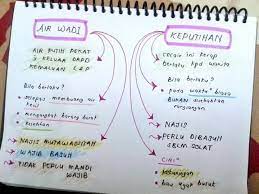 AIR WADI
AIR PUTIH PEKAT
& KELUAR DARI
KEMALUAN L&P
Bila berlaku?
selepas membuang air
kecil
mengangkat barang berat
keletihan
NAJIS MUTAWASSITAH
WAJIB BASUH
TIDAK PERLU MANDI
WAJIB
KEPUTIHAN
cecair ini kerap
berlaku kpd wanita
Bila berlaku?
pada waktu" biasa
BUKAN disebabkan
NAJIS
PERLU DIBASUH
SBLM SOLAT
CIRI"
kekuningan
bau agak busuk